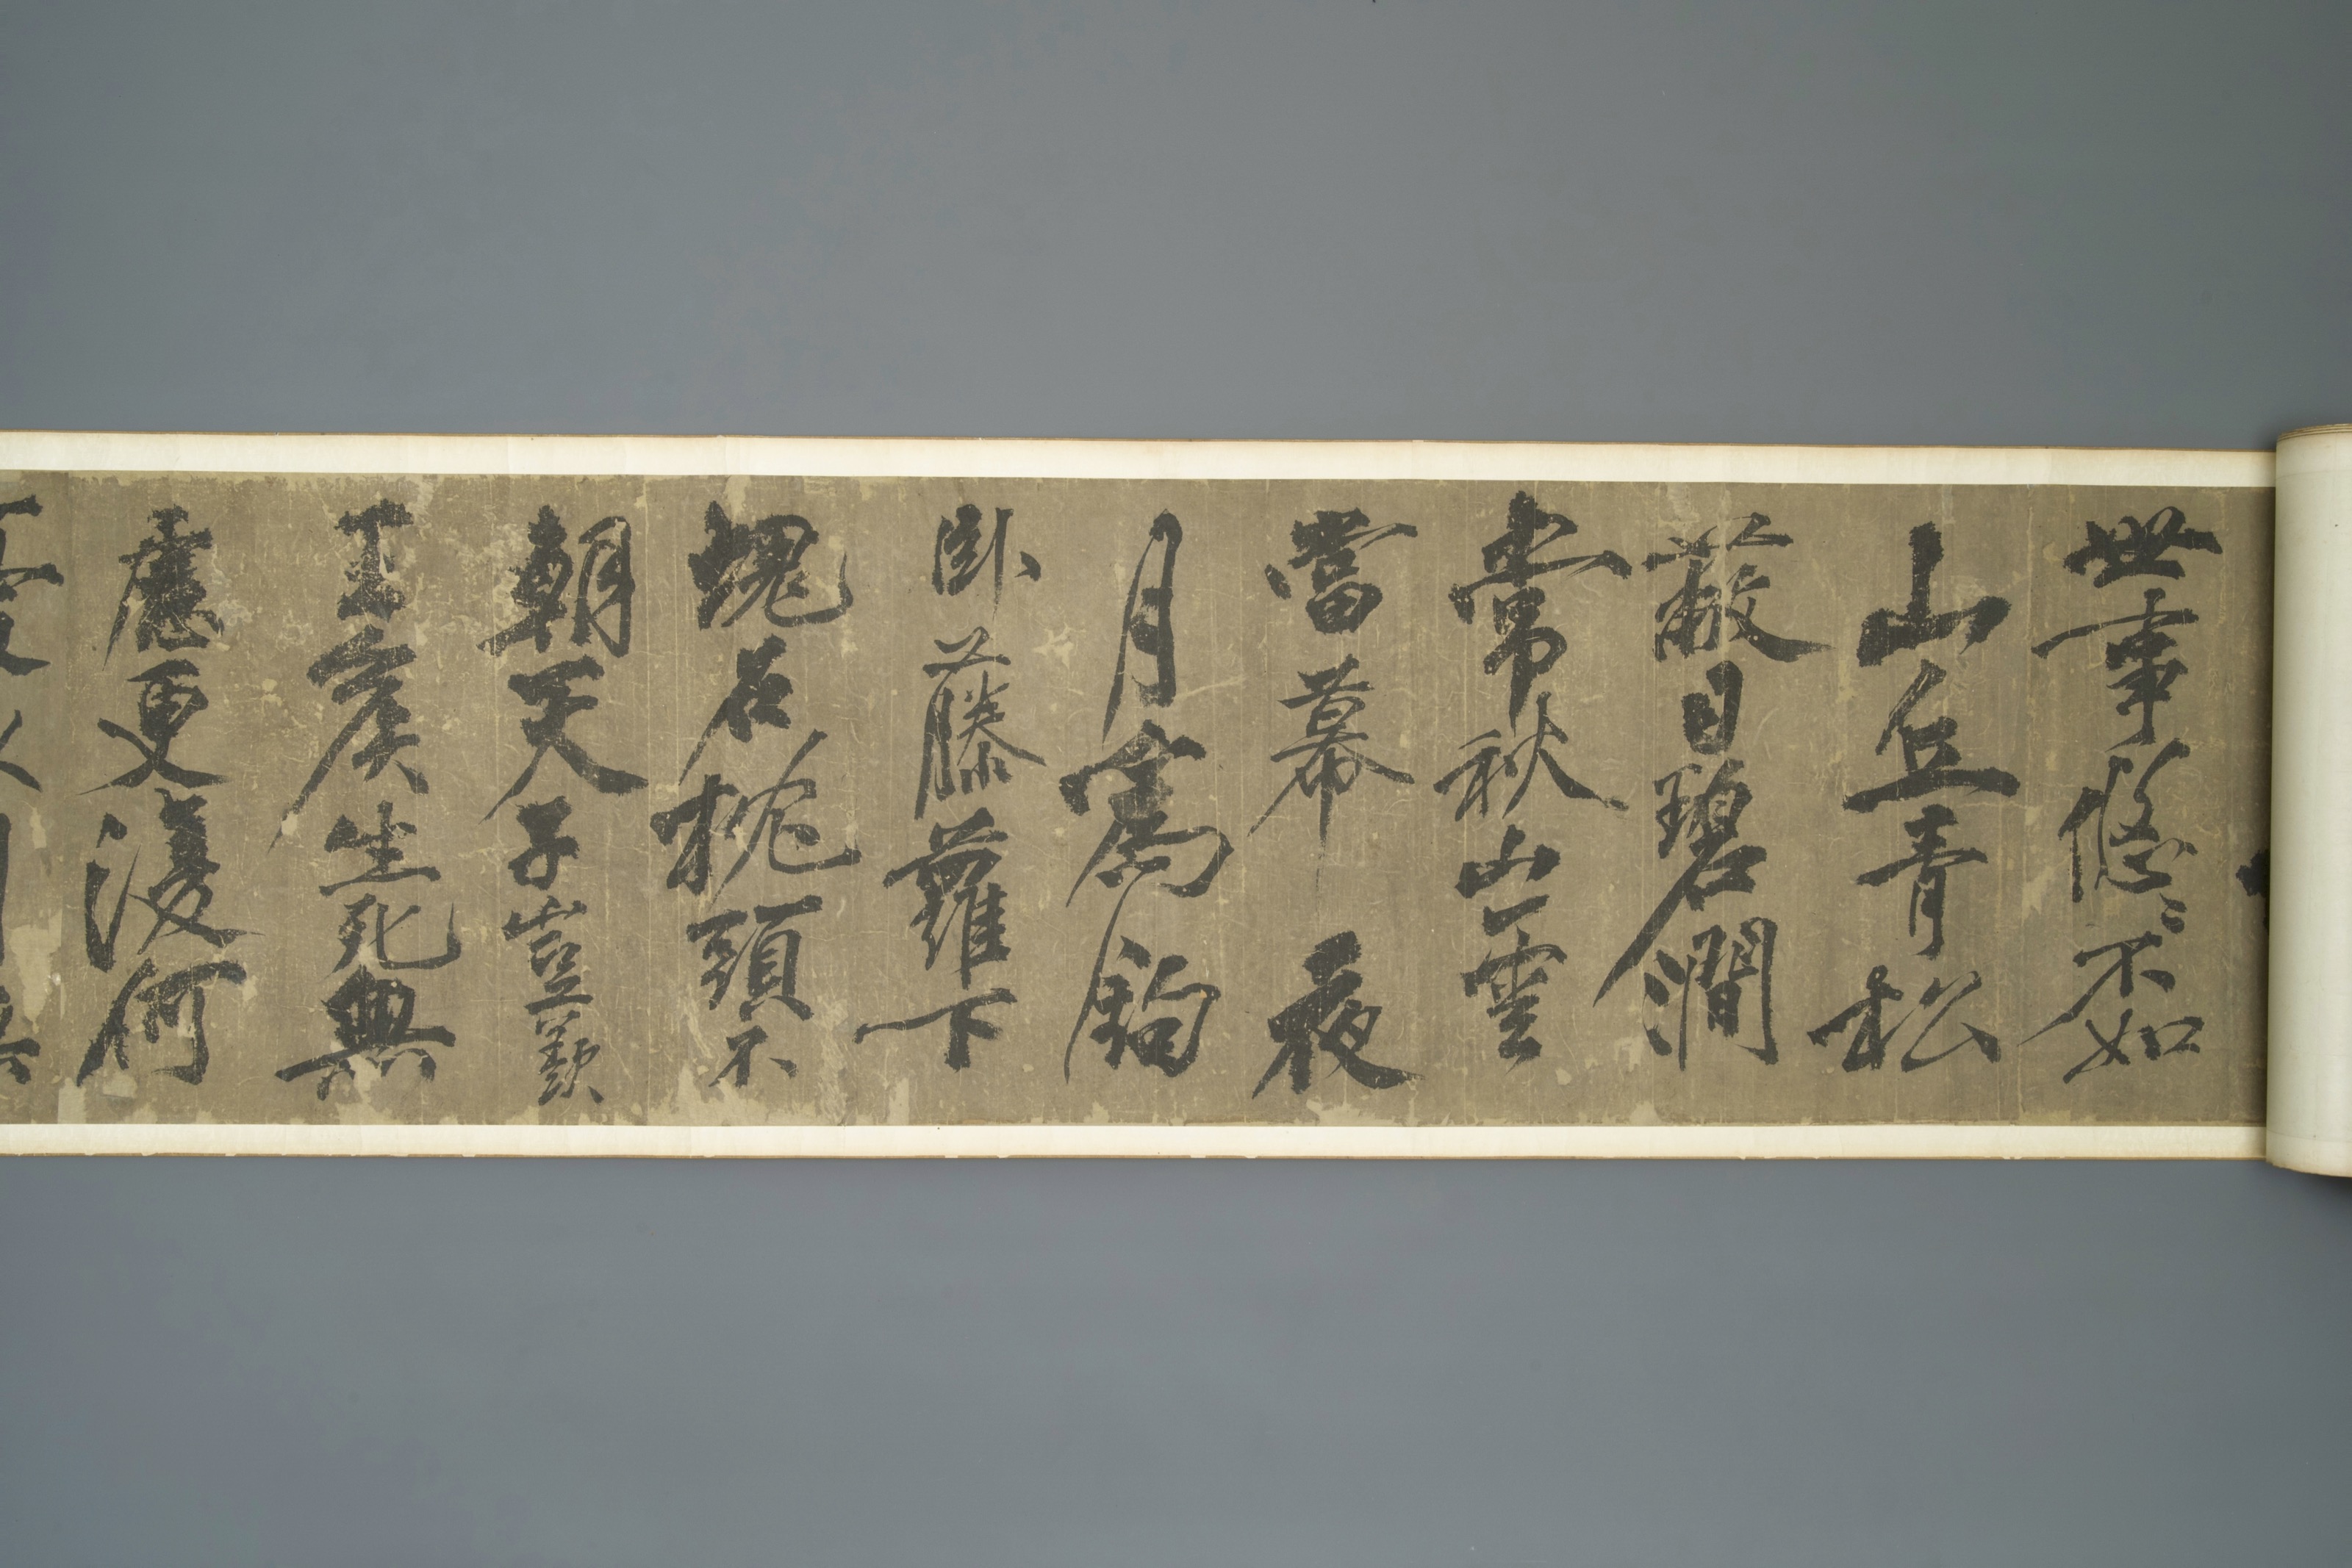 世事悠〻不如
山丘青松
蔽日碧澗
常秋山雲
當幕夜
月為鈎
卧藤蘿下
塊石枕頭不
朝天子豈羨
王侯生死無
慮更復何